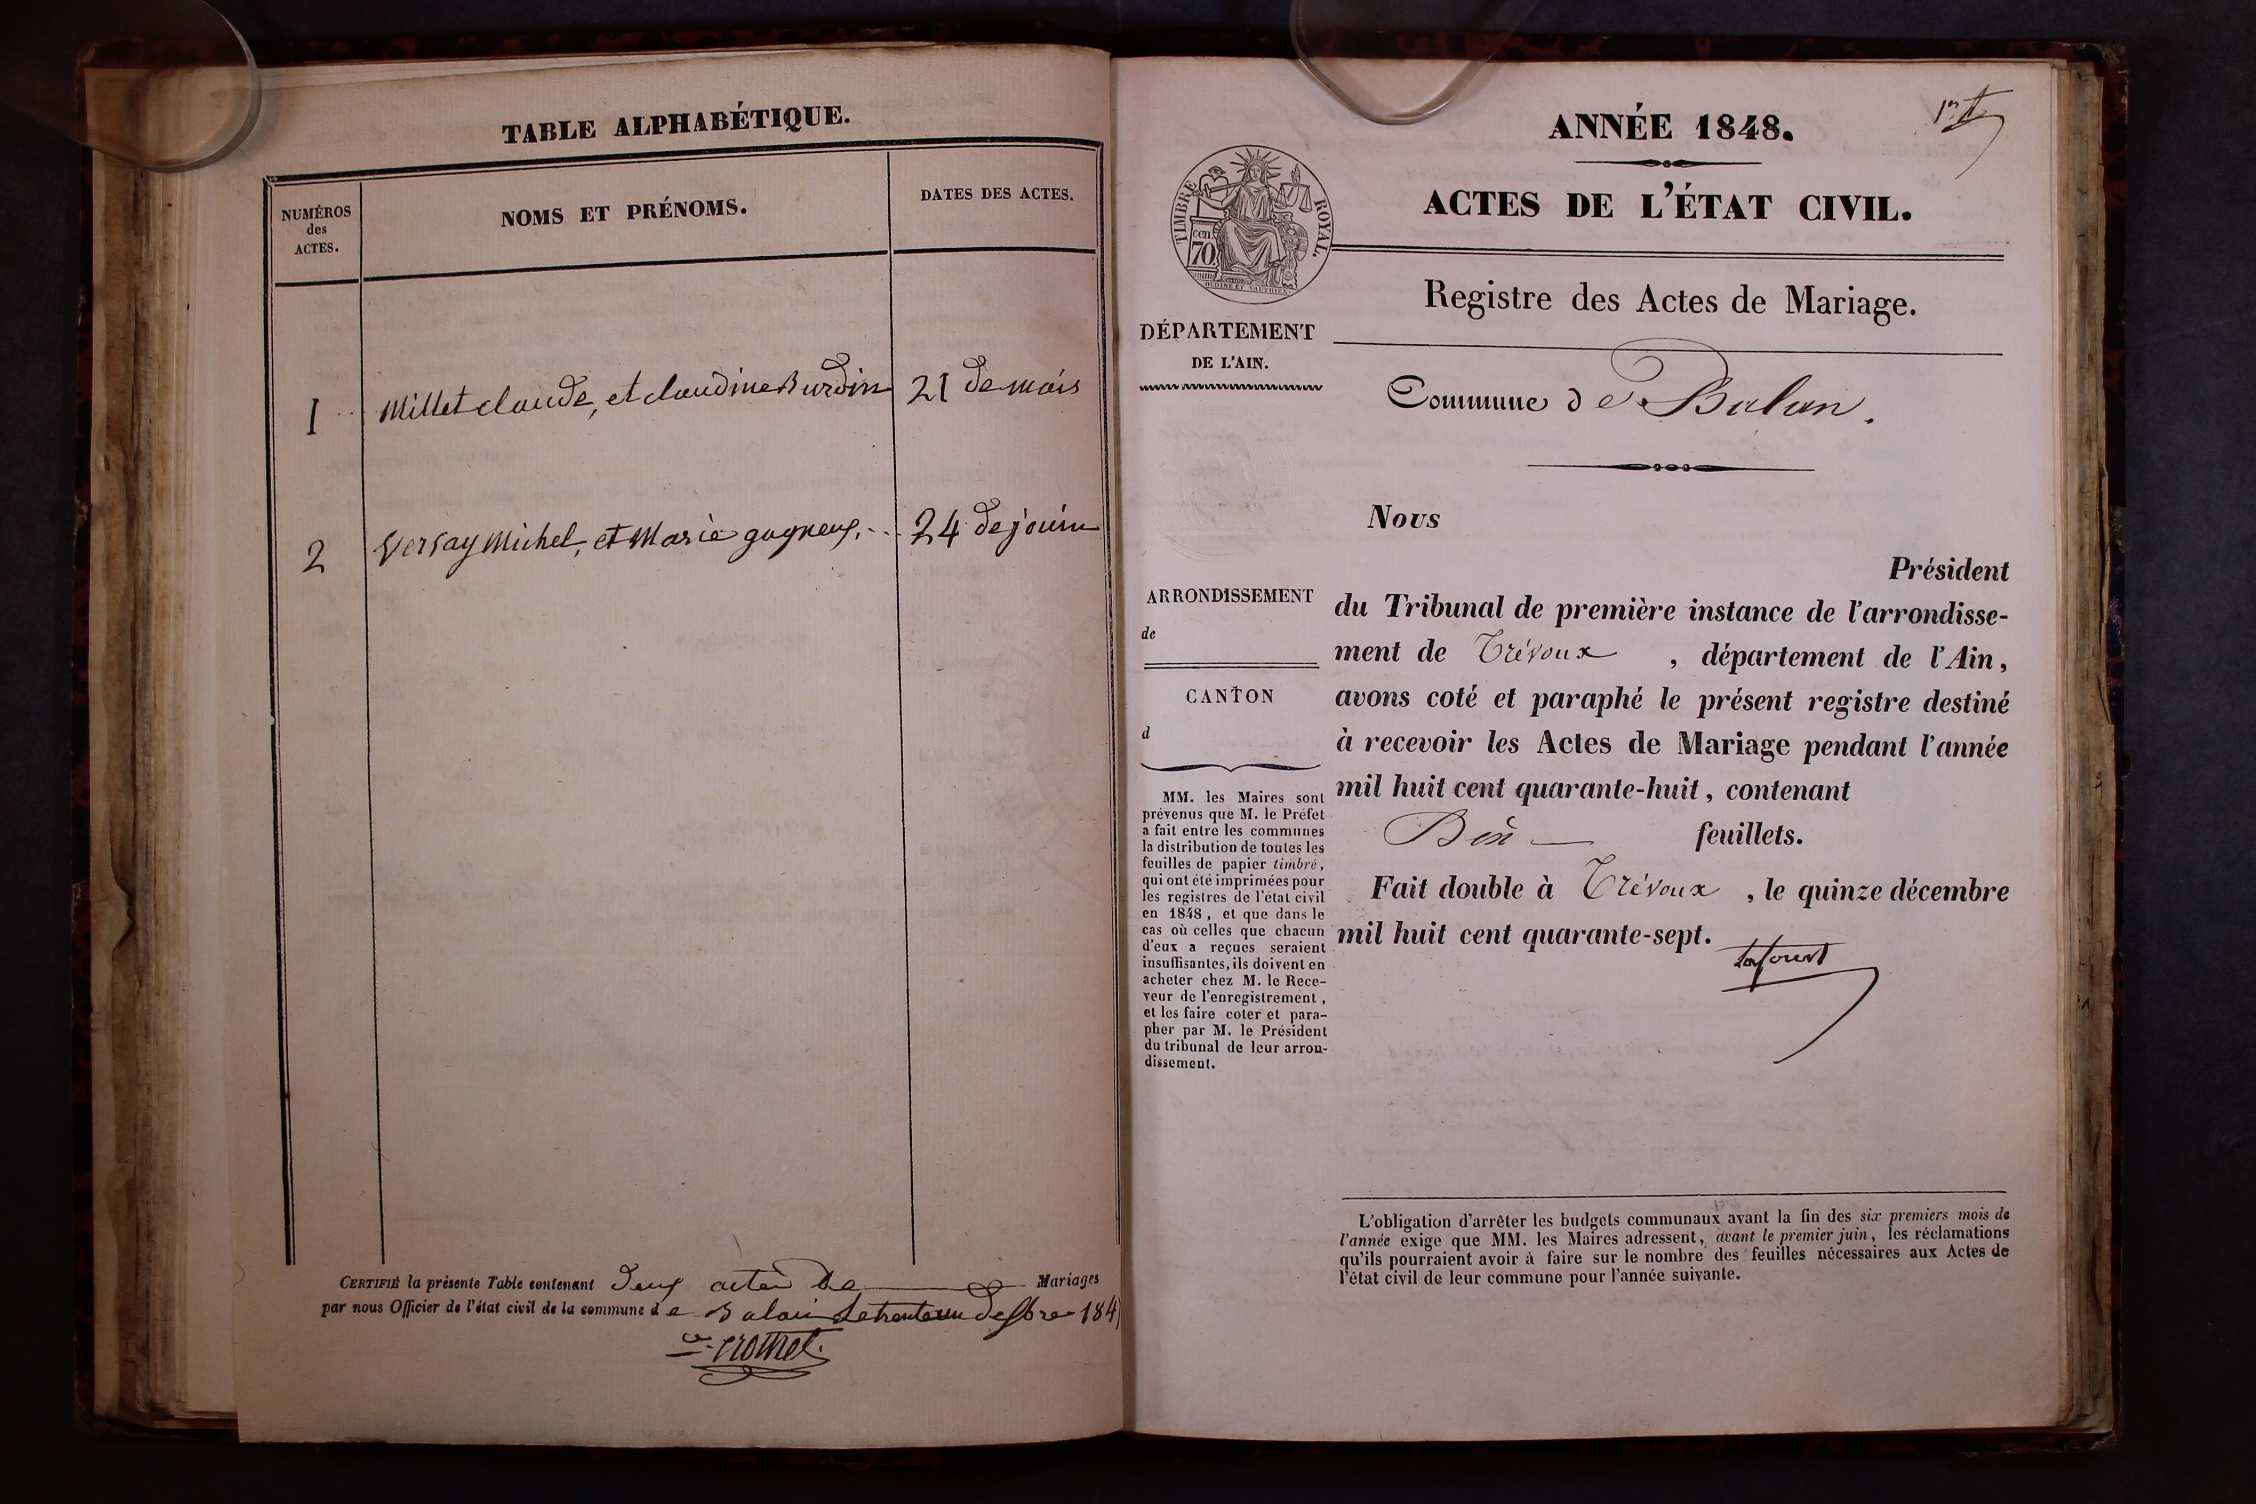 TABLE ALPHABÉTIQUE.
NUMÉROS
des
ACTES.
NOMS ET PRÉNOMS.
DATES DES ACTES.
1 Millet claude, et claudine Burdin 21 de mars
2 Versay Michel, et Marie gagneux. 24 de jouin
CERTIFIÉ la présente Table contenant deux actes de Mariages
par nous Officier de l'état civil de la commune de Balan le trente un Xbre 184
1er
ANNÉE 1848.
ACTES DE L'ÉTAT CIVIL.
TIMBRE ROYAL.
cen.
70
Registre des Actes de Mariage.
DÉPARTEMENT
DE L'AIN.
Commune de Balan.
Nous
Président
du Tribunal de première instance de l'arrondisse-
ment de Trévoux , département de l'Ain,
avons coté et paraphé le présent registre destiné
à recevoir les Actes de Mariage pendant l'année
mil huit cent quarante-huit, contenant
feuillets.
Fait double à Trévoux , le quinze décembre
mil huit cent quarante-sept.
ARRONDISSEMENT
de
CANTON
d
MM. les Maires sont
prévenus que M. le Préfet
a fait entre les communes
la distribution de toutes les
feuilles de papier timbré,
qui ont été imprimées pour
les registres de l'état civil
en 1848, et que dans le
cas où celles que chacun
d'eux a reçues seraient
insuffisantes, ils doivent en
acheter chez M. le Rece-
veur de l'enregistrement,
et les faire coter et para-
pher par M. le Président
du tribunal de leur arron-
dissement.
L'obligation d'arrêter les budgets communaux avant la fin des six premiers mois de
l'année exige que MM. les Maires adressent, avant le premier juin, les réclamations
qu'ils pourraient avoir à faire sur le nombre des feuilles nécessaires aux Actes de
l'état civil de leur commune pour l'année suivante.